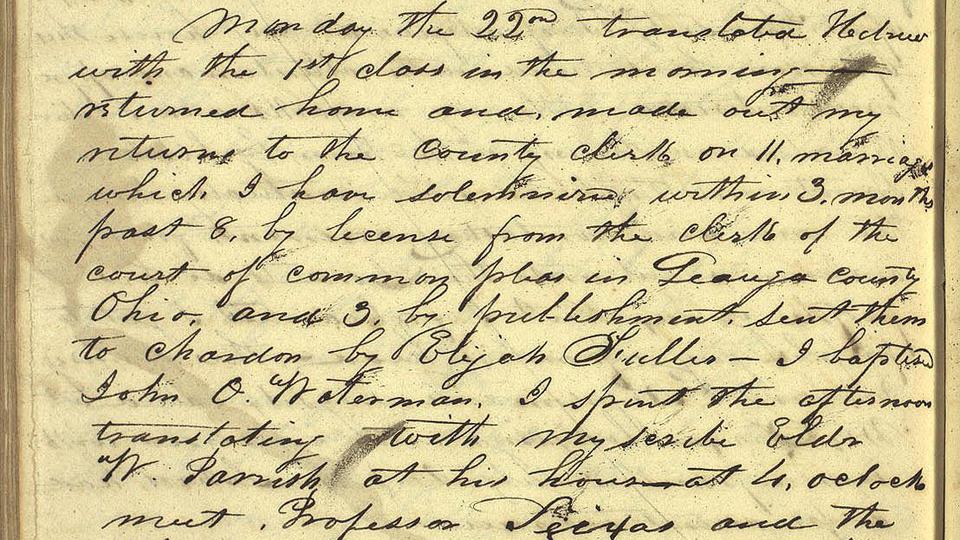 Monday the 22nd translated Hebrew
with the 1st class in the morning—
returned home and, made out my
returns to the County clerk on 11. marriages
which I have solemnized within 3. months
past 8, by license from the clerk of the
court of common pleas in Geauga county
Ohio, and 3, by publishment, sent them
to chardon by Elijah Fuller — I baptised
John O. Waterman. I spent the afternoon
translating with my scribe Eldr
W. Parrish, at his house at 4, oclock
meet, Professor Seixas and the